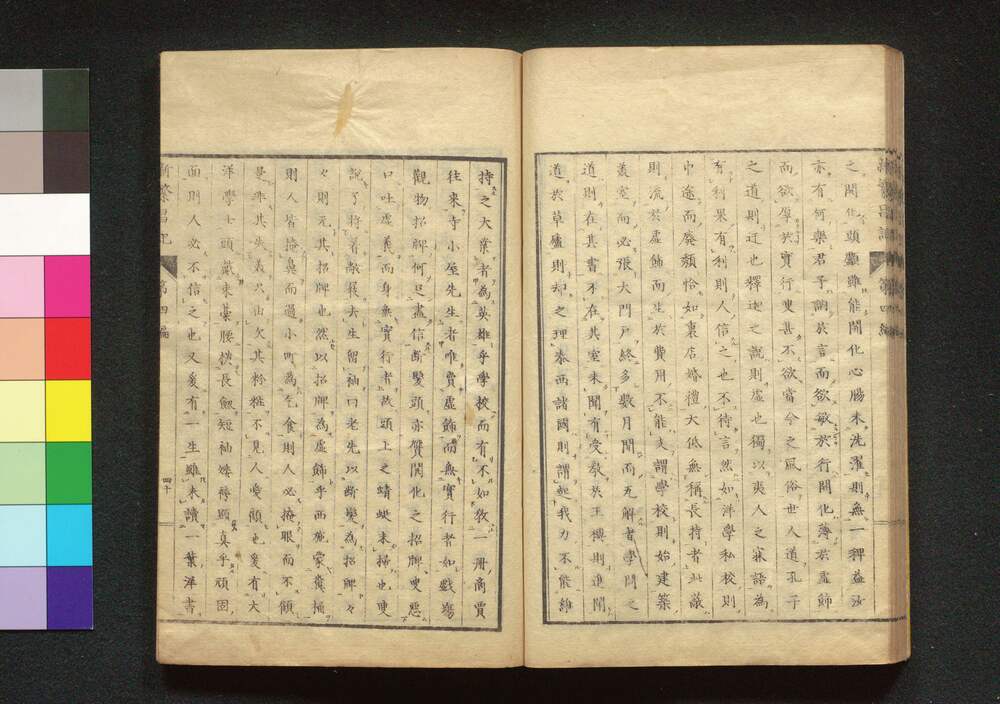 之開化頭顱雖能開化心腸未洗濯則無一稗益歟
亦有何樂君子訥於言而欲敏於行開化薄於虛飾
而欲厚於實行叟甚不欲當今之風俗世人道孔子
之道則迂也釋迦之說則虛也獨以夷人之寐語為
有利果有利則人信之也不待言然如洋學私校則
中途而廢頽恰如裏店婚禮大低無稱長持者此蔽
則流於虛飾而生於費用不能支謂學校則始建築
美室而必張大門戶終多數月間而无解者學問之
道則在其書不在其室未聞有受教於玉樓則進聞
道於草廬則却之理泰西諸國則謂起我力不能維
持之大業者為英雄乎學校而有不如教一册商賈
往來寺小屋先生者唯賣虛飾而無實行者如戲場
觀物招牌何足盡信断髮頭亦贋開化之招牌叟惡
口吐虛義而身無實行者故頭上之蜻蜓未掃也叟
說了將着敞屐去生留袖曰老先以断髮為招牌々
々則无其招牌也然以招牌為虛飾乎西施蒙糞桶
則人皆掩鼻而過小町為乞食則人必掩眼而不傾
是非其失美欠由欠其粉粧不見人愛傾也爰有大
洋學士頭戴束藁腰横長劔短袖矮袴頭真乎頑固
面則人必不信之也又爰有一生雖未讀一葉洋書
新繁昌記 第四編
四十